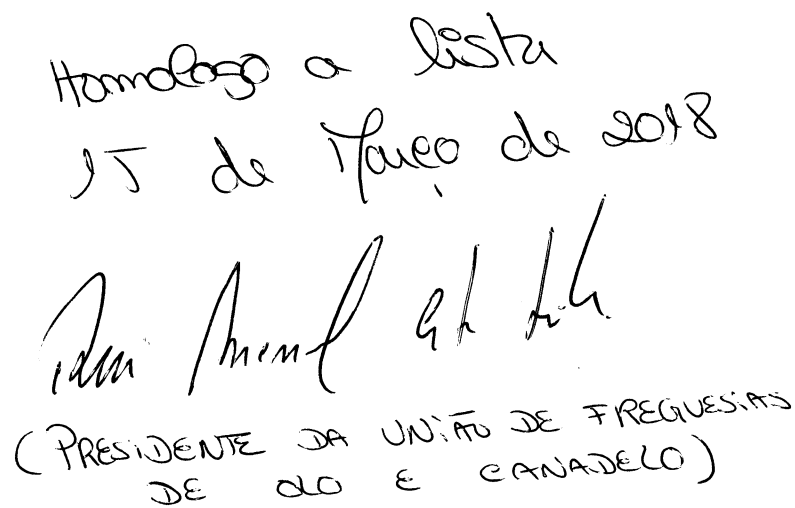 Homologo a lista
15 de Março de 2018
(PRESIDENTE DA UNIÃO DE FREGUESIAS
DE OLO E CANADELO)